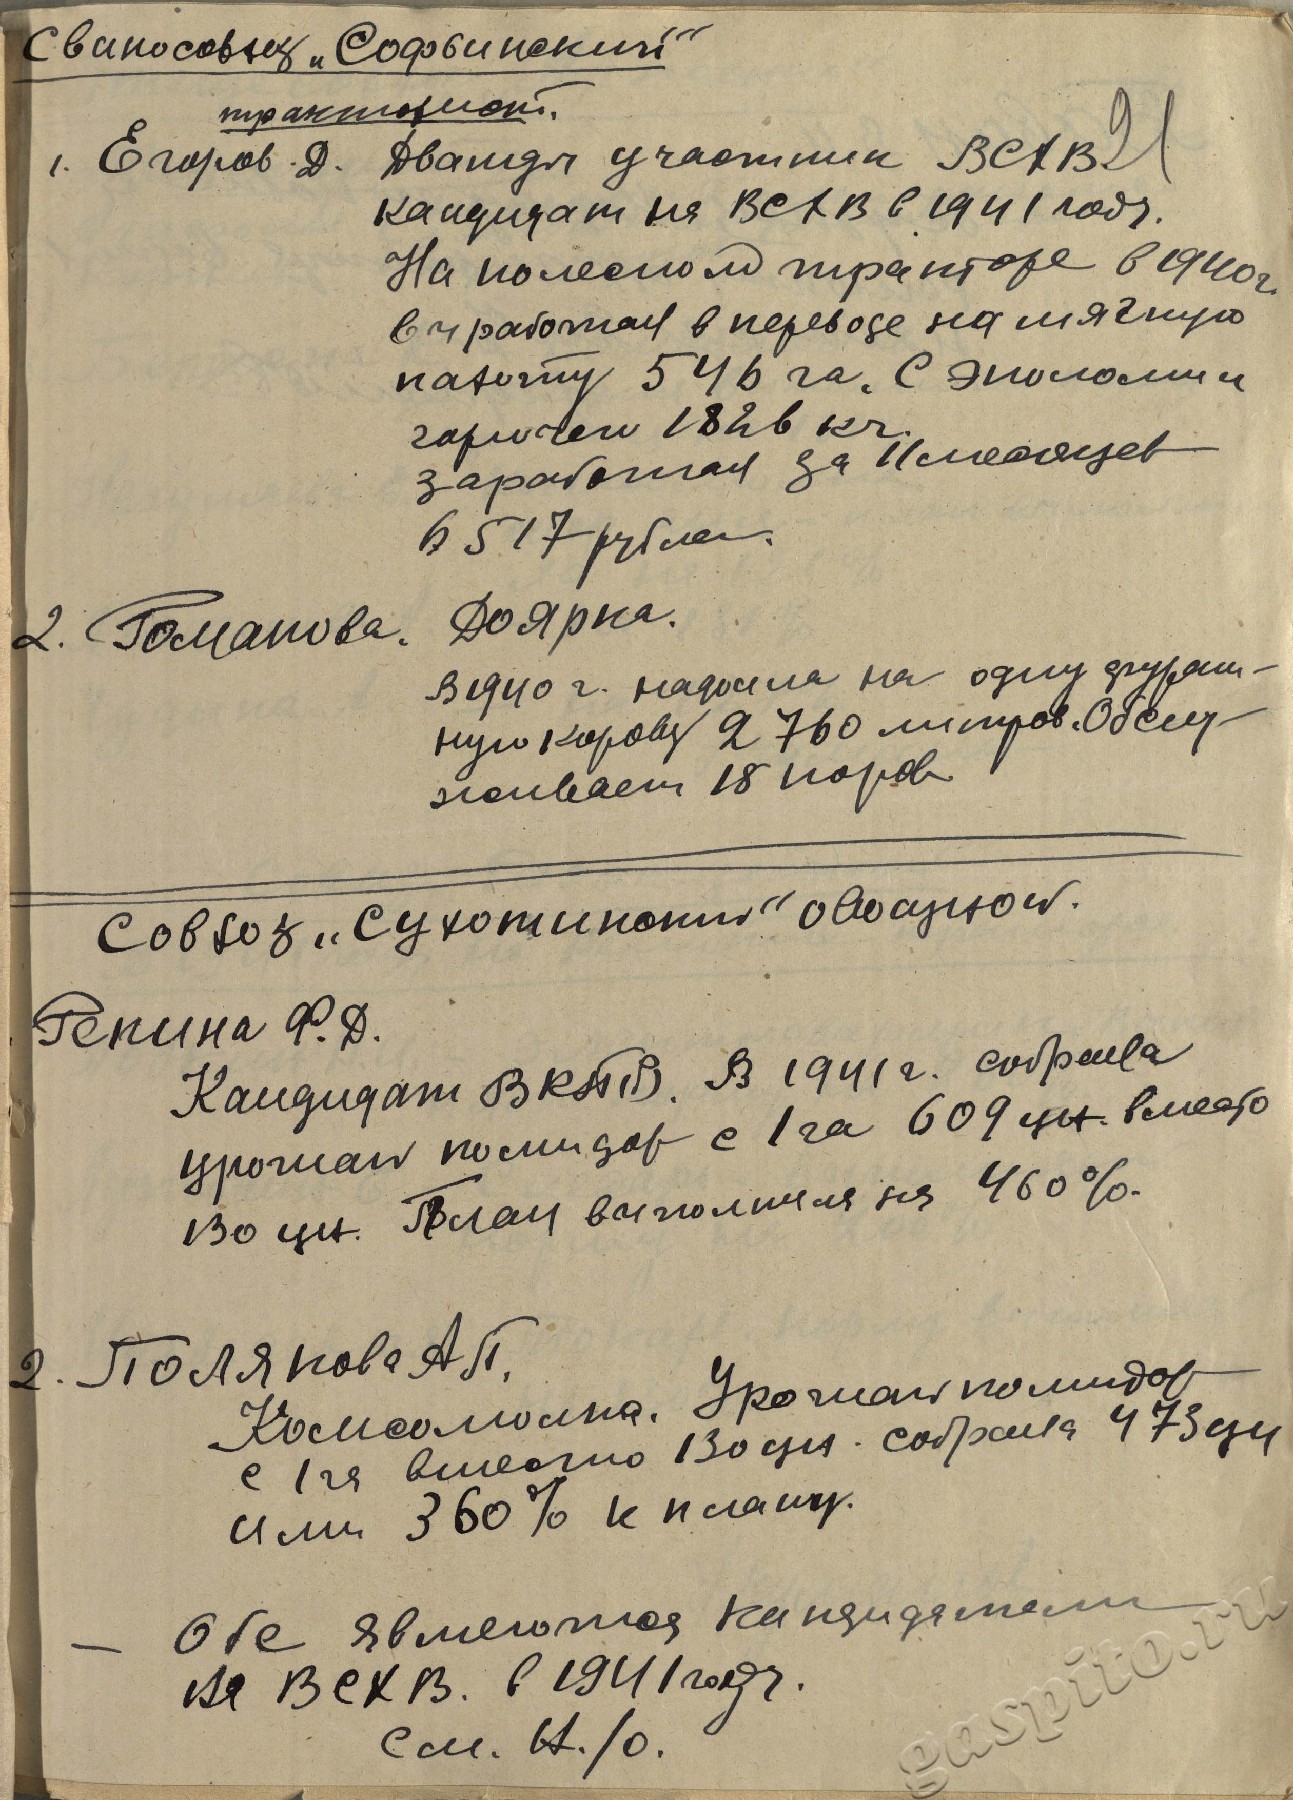 Свиносовхоз „Софьинский"
тракторист.
21
1. Егоров. Д. Дважды участник ВСХВ
кандидат на ВСХВ в 1941 году.
На колесном тракторе в 1940 г.
выработал в переводе на мягкую
пахоту 546 га. С экономил
горючего 1826 кг.
заработал за 11 месяцев
6517 рублей.
2. Романова. Доярка.
В 1940 г. надоила на одну фураж-
ную корову 2760 литров. Обслу-
живает 18 коров
Совхоз „Сухотинский" овощной.
Репина Ф. Д.
Кандидат ВКПБ. В 1941 г. собрала
урожай помидор с 1 га 609 цн. вместо
130 цн. План выполнила на 460%.
2. Полякова А П.
Комсомолка. Урожай помидор
с 1 га вместо 130 цн. собрала 473 цн
или 360% к плану.
— Обе являются кандидатами
на ВСХВ. в 1941 году.
см. н./о.
gaspito.ru